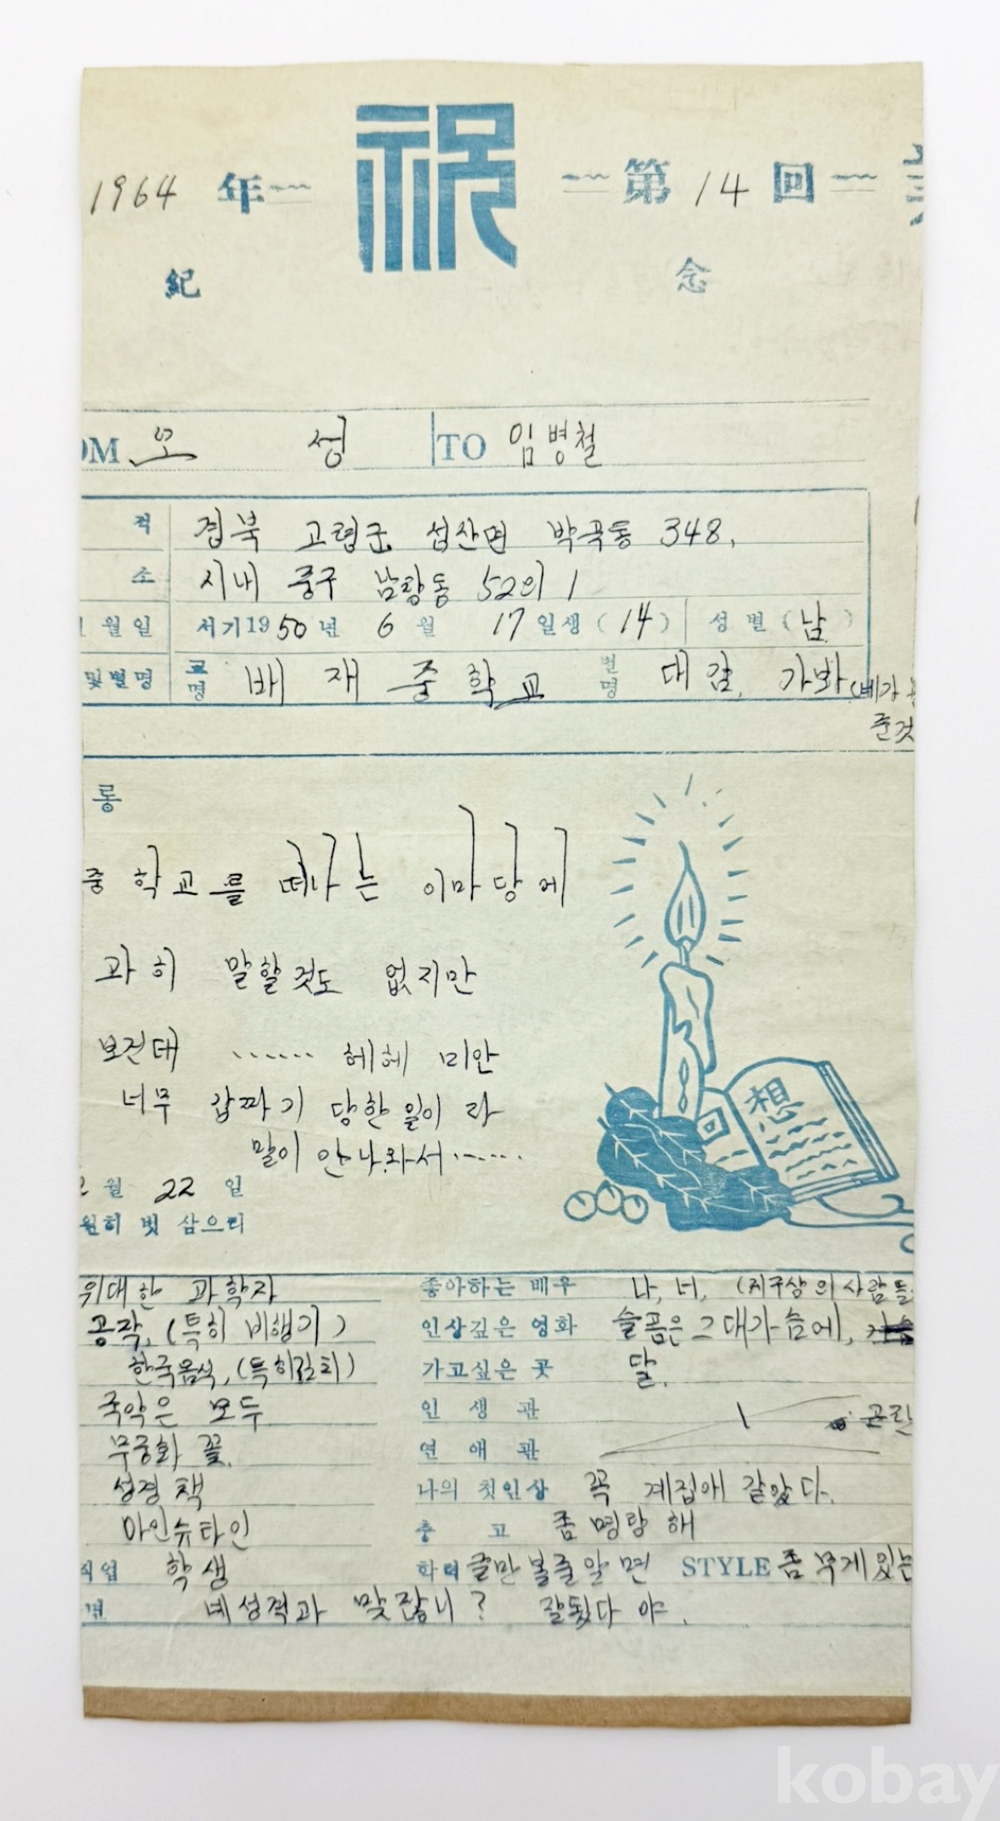 1964 年 祝 第 14 回
紀 念
OM 오 성 TO 임병철
적 경북 고령군 쌍산면 박곡동 348.
소 시내 중구 남창동 52의 1
월일 서기1950년 6월 17일생 (14) 성별 (남)
및별명 교명 배재중학교 별명 대감, 가봐 (베가
준것
롱
중학교를 떠나는 이마당에
과히 말할것도 없지만
보건대 ...... 헤헤 미안
너무 갑짜기 당한일이라
말이 안나와서......
월 22 일
원히 벗 삼으리
위대한 과학자 좋아하는 배우 나, 너, (지구상의 사람들
공작, (특히 비행기) 인상깊은 영화 슬픔은 그대가슴에,
한국음식, (특히김치) 가고싶은 곳 달.
국악은 모두 인 생 관 곤란
무궁화 꽃. 연 애 관
성경책 나의 첫인상 꼭 계집애 같았다.
아인슈타인 충 고 좀 명랑해
직업 학생 학력 글만 볼줄알면 STYLE 좀 무게있는
네성격과 맞잖니? 잘됬다 야.
kobay